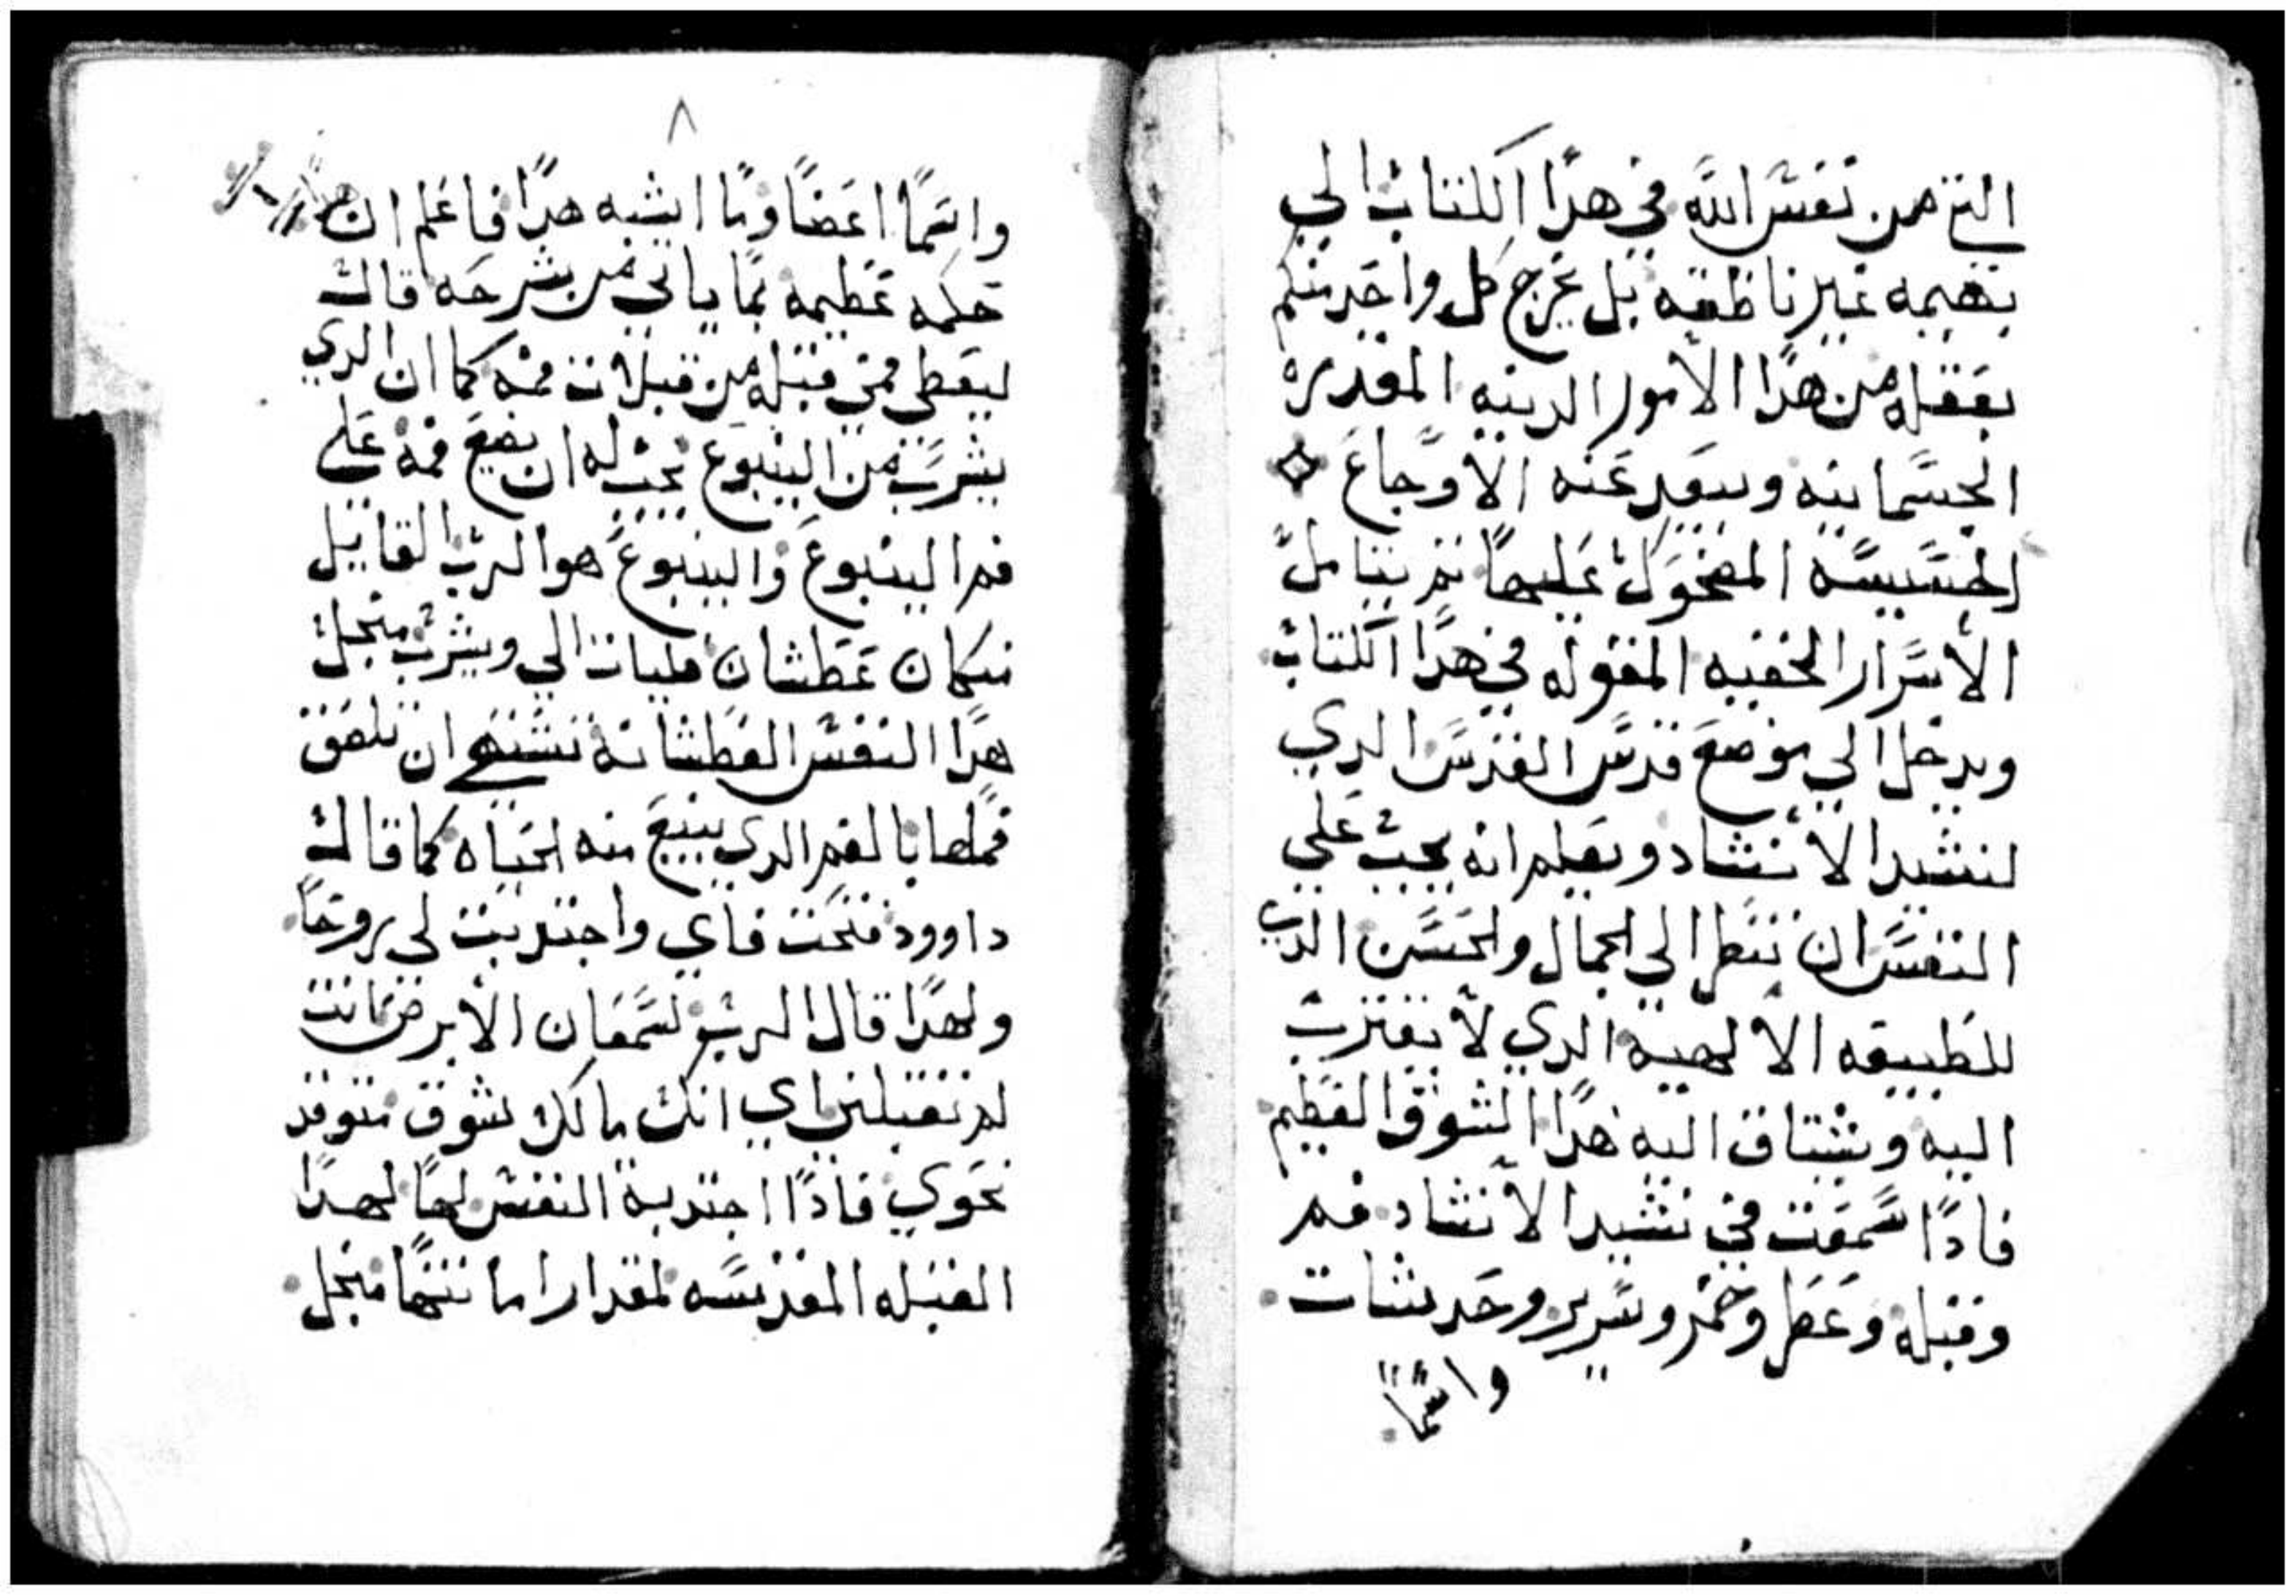 التي من نفس الله في هدا الكتاب الي
بهيمه غير ناطقه بل يخرج كل واحد منكم
بعقله من هدا الامور الدينه المقدره
الجسمانيه ويبعد عنه الاوجاع
الخسيسه المضحوك عليها ثم يتامل
الأسرار الخفيه المقوله في هدا الكتاب
ويدخل الي موضع قدس القدس الدي
لنشيد الانشاد ويعلم انه يجب علي
النفس ان تنظر الي الجمال والحسن الدي
للطبيعه الالهيه الدي لا يقترب
اليه وتشتاق اليه هدا الشوق العظيم
فادا سمعت في نشيد الانشاد فم
وقبله وعطر وخمر وسرير وحديثات
واتما
٨
واتما اعضا وما اشبه هدا فاعلم ان هدا
حكمه عظيمه بما ياتي من شرحه قال
ليعطي فمي قبله من قبلات فمه كما ان الدي
يشرب من الينبوع يجب له ان يضع فمه علي
فم الينبوع والينبوع هو الرب القايل
من كان عطشان فليات الي ويشرب منجل
هدا النفس العطشانه تشتهي ان تلصق
فمها بالفم الدي ينبع منه الحياه كما قال
داوود فتحت فاي واجتدبت لي روحا
ولهدا قال الرب لسمعان الأبرص انت
لم تقبلني اي انك مالك شوق متوقد
نحوي فادا اجتدبة النفس لها لهدا
القبله المقدسه لمقدار ما تتنها منجل